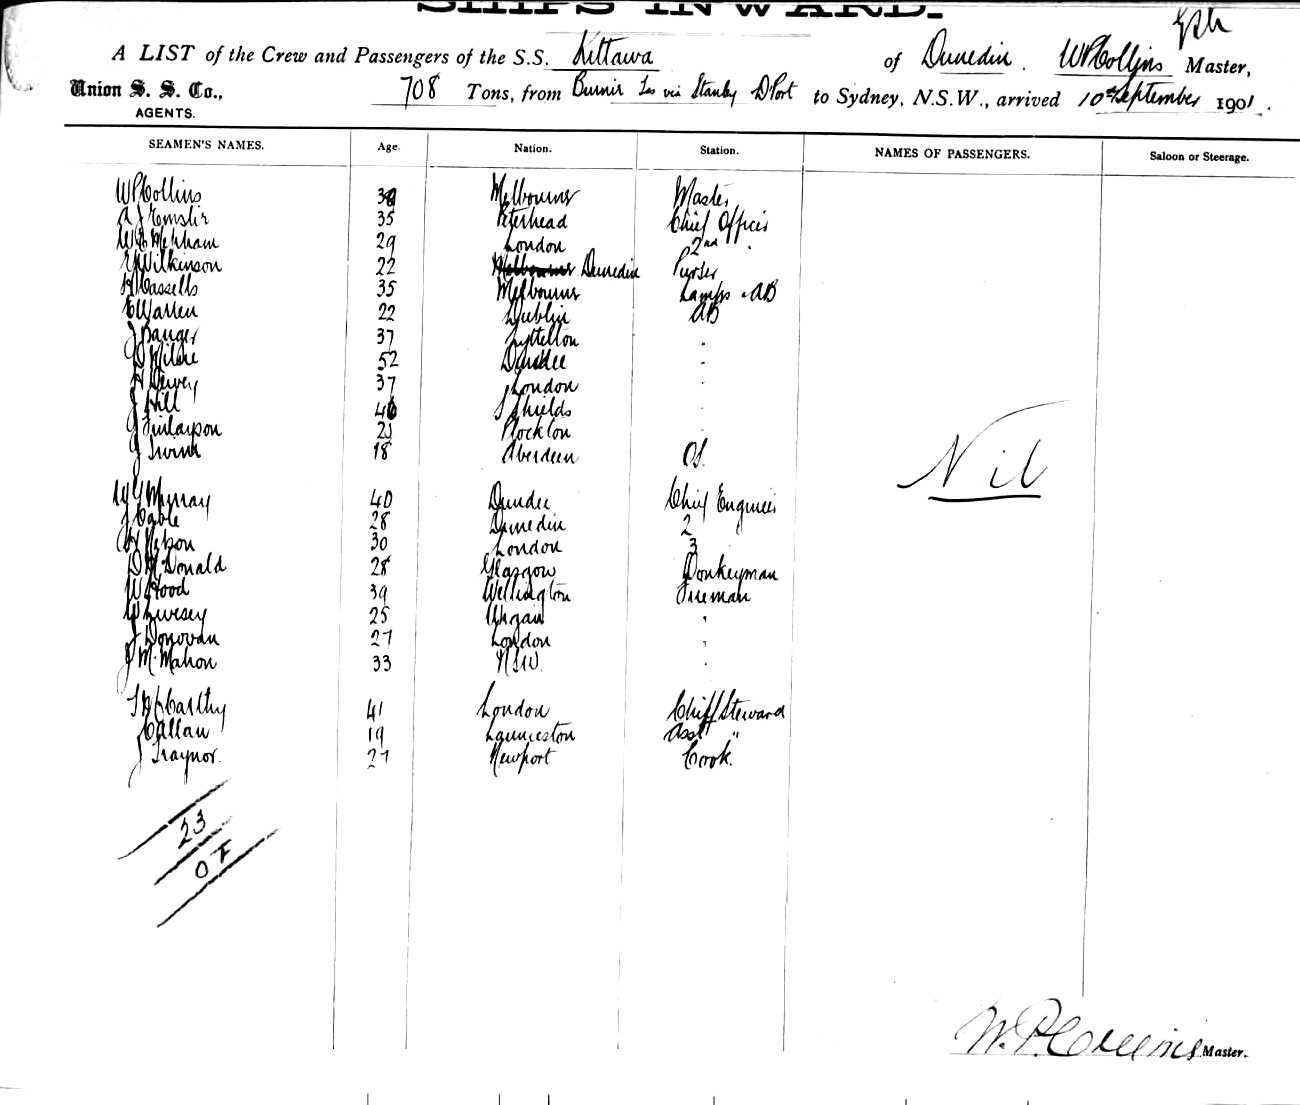 SHIPS INWARD.
A LIST of the Crew and Passengers of the S.S. Kittawa of Dunedin. W P Collins Master,
Union S. S. Co., AGENTS. 708 Tons, from Burnie Tas via Stanley DPort to Sydney, N.S.W., arrived 10th September 1901.
SEAMEN'S NAMES. Age. Nation. Station. NAMES OF PASSENGERS. Saloon or Steerage.
W P Collins Melbourne Master
A J 35 Peterhead Chief Officer
29 London 2nd "
Wilkinson 22 Melbourne Dunedin Purser
Cassells 35 Melbourne Lamps & AB
E Warren 22 Dublin AB
J 37 Lyttelton "
D Milne 52 Dundee "
H Dewey 37 London "
J Hill S Shields "
J Finlayson Plockton "
J Irvine 18 Aberdeen OS.
W G Murray 40 Dundee Chief Engineer
J Cable 28 Dunedin 2
Nelson 30 London 3
D McDonald 28 Glasgow Donkeyman
W Hood 39 Wellington Fireman
W Livesey 25 Wigan "
J Donovan 27 London "
J McMahon 33 NSW. "
McCarthy 41 London Chief Steward
Callan 19 Launceston Asst "
J Traynor. 27 Newport Cook.
Nil
23
0
W. P. Collins Master.